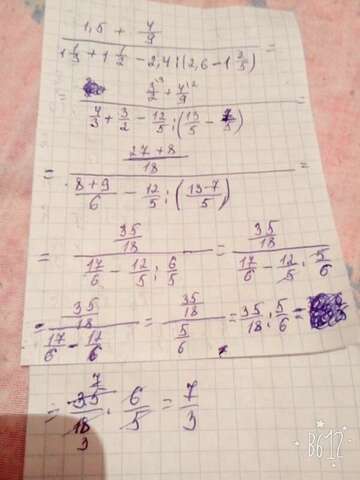 (1,5 + 4/9) / (1 1/3 + 1 1/2 − 2,4 : (2,6 − 1 2/5)) =
= (3/2 + 4/9) / (4/3 + 3/2 − 12/5 : (13/5 − 7/5)) =
= ((27 + 8)/18) / ((8+9)/6 − 12/5 : ((13−7)/5)) =
= (35/18) / (17/6 − 12/5 : 6/5) = (35/18) / (17/6 − 12/5 · 5/6)
= (35/18) / (17/6 − 12/6) = (35/18) / (5/6) = 35/18 : 5/6 =
= 35/18 · 6/5 = 7/3
B612